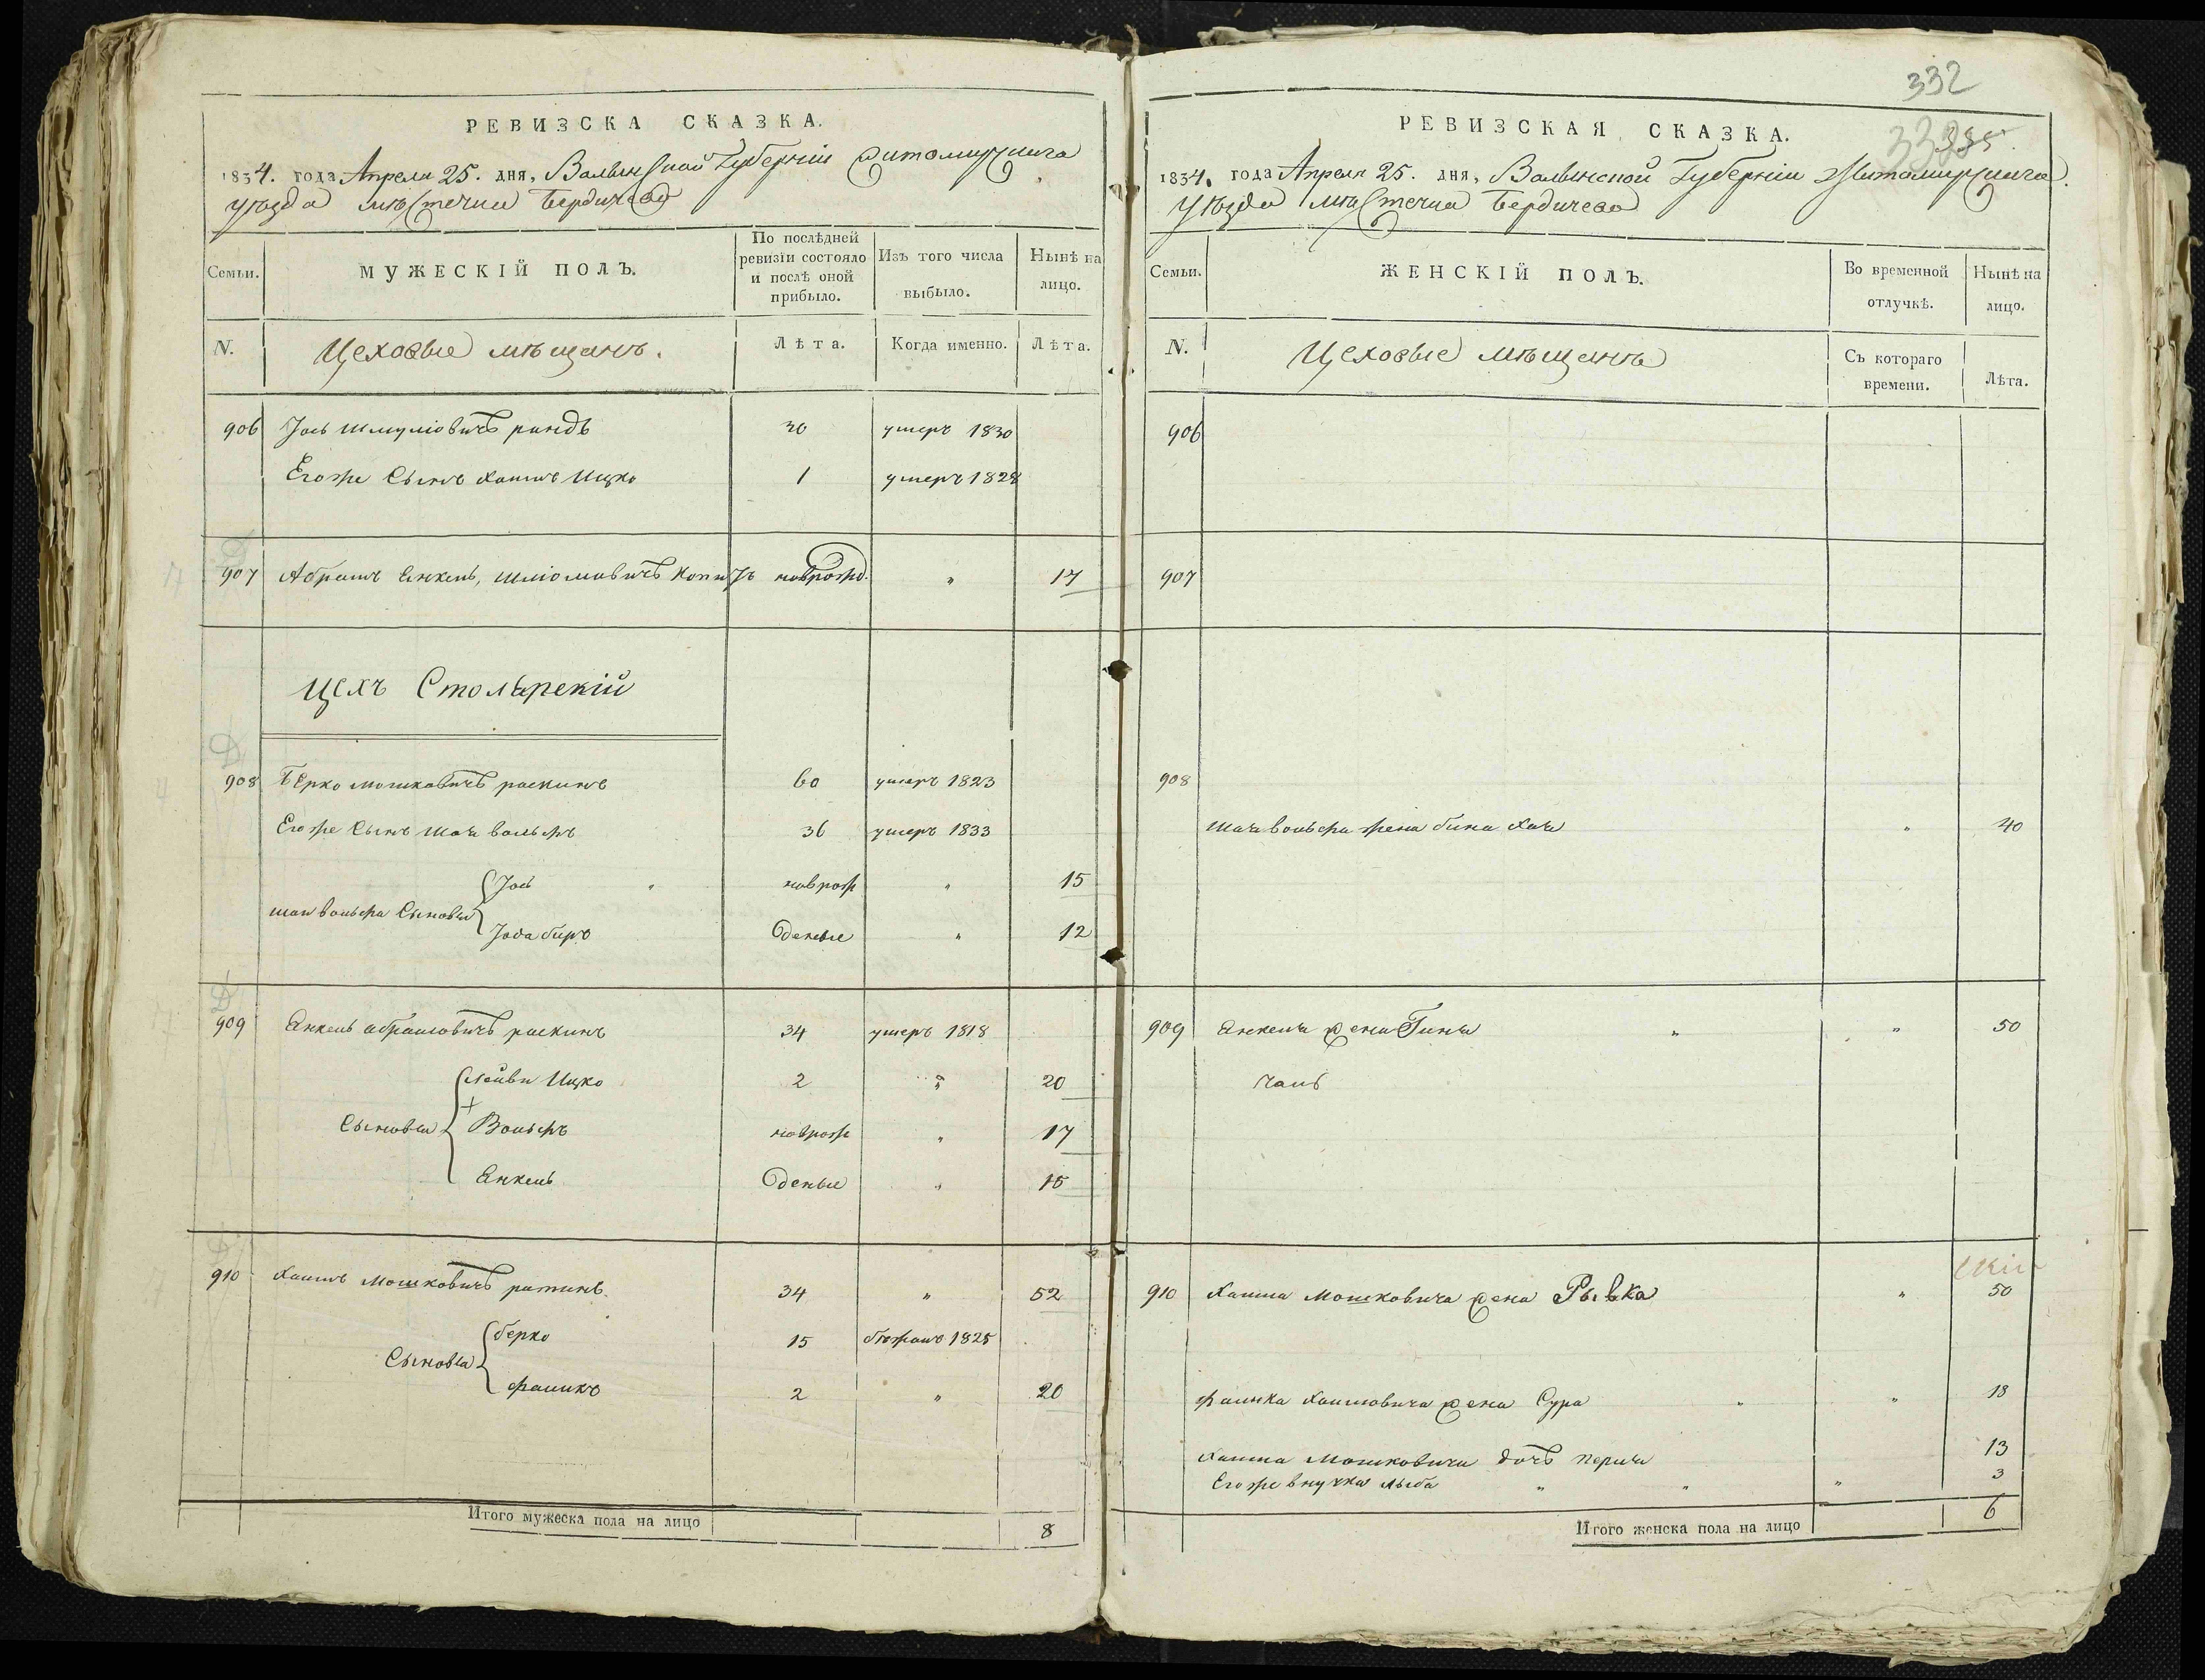 332
335
РЕВИЗСКА СКАЗКА.
1834. года Апреля 25. дня, Волынской Губернии Житомирского
уѣзда мѣстечка Бердичева
Семьи.
МУЖЕСКІЙ ПОЛЪ.
По послѣдней ревизіи состояло и послѣ оной прибыло.
Изъ того числа выбыло.
Нынѣ на лицо.
N.
Цеховые мѣщанъ.
Лѣта.
Когда именно.
Лѣта.
906 Іось Шмуліовичъ 30 умеръ 1830
Егоже Сынъ Хаимъ Ицко 1 умеръ 1828
907 Абрамъ Енкель, Шліомовичъ новрожд. " 17
Цехъ Столярскій
908 Берко Мошковичъ раскинъ 60 умеръ 1823
Егоже Сынъ Шая вольфъ 36 умеръ 1833
Шаи вольфа Сыновья
Іось новрож " 15
Іова биръ деные " 12
909 Енкель абрамовичъ раскинъ 34 умеръ 1818
Сыновья
Лейби Ицко 2 " 20
Вольфъ новрож " 17
Енкель деные " 15
910 Хаимъ Мошковичъ 34 " 52
Сыновья
берко 15 бѣжалъ 1825
фаликъ 2 " 20
Итого мужеска пола на лицо 8
РЕВИЗСКАЯ СКАЗКА.
1834. года Апреля 25. дня, Волынской Губерніи Житомирскаго
Уѣзда мѣстечка Бердичева
Семьи.
ЖЕНСКІЙ ПОЛЪ.
Во временной отлучкѣ.
Нынѣ на лицо.
N.
Цеховые мѣщанъ
Съ котораго времени.
Лѣта.
906
907
908
Шаи вольфа жена бина хая " 40
909 Енкеля жена Гиня " " 50
910 Хаима Мошковича жена Рывка " 50
фалика Хаимовича жена Сура " " 18
Хаима Мошковича дочь перля 13
Егоже внучка " " " 3
Итого женска пола на лицо 6